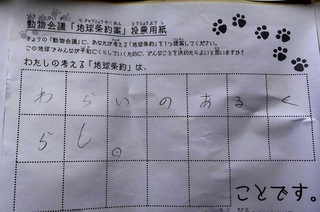 動物会議「地球条約案」投票用紙
きょうの「動物会議」に、あなたが考える「地球条約」を1つ提案してください。
この地球でみんなが平和にくらしていくために、どんなことを決めたらよいと思いますか?
わたしの考える「地球条約」は、
わらいのあるく
らし。
ことです。